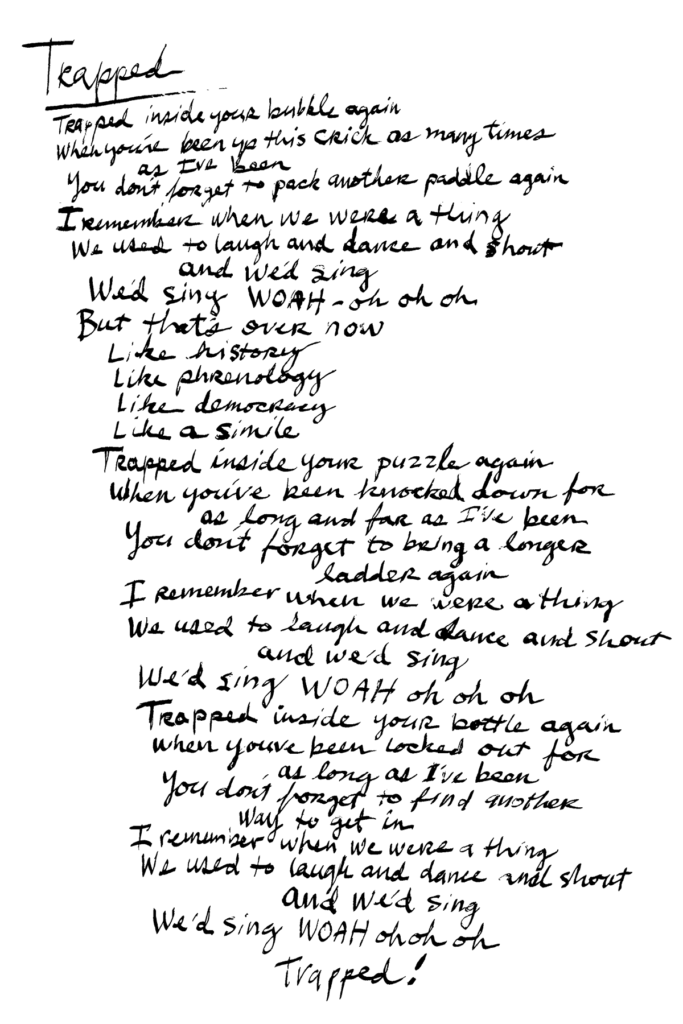 Trapped
Trapped inside your bubble again
When you've been up this crick as many times
as I've been
You don't forget to pack another paddle again
I remember when we were a thing
We used to laugh and dance and shout
and we'd sing
We'd sing WOAH-oh oh oh
But that's over now
Like history
Like phrenology
Like democracy
Like a simile
Trapped inside your puzzle again
When you've been knocked down for
as long and far as I've been
You don't forget to bring a longer
ladder again
I remember when we were a thing
We used to laugh and dance and shout
and we'd sing
We'd sing WOAH oh oh oh
Trapped inside your bottle again
when youve been locked out for
as long as I've been
You don't forget to find another
way to get in
I remember when we were a thing
We used to laugh and dance and shout
and we'd sing
We'd sing WOAH oh oh oh
Trapped!